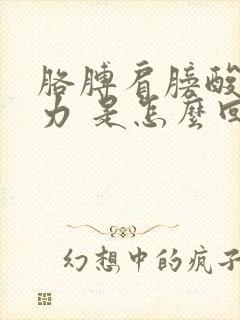 胳膊肩膀酸
力 是怎麼回
幻想中的疯子